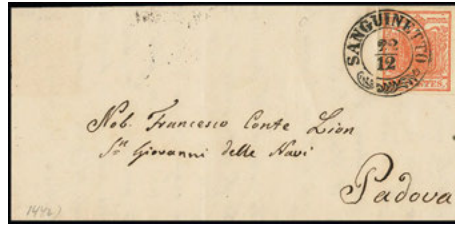 SANGUINETTO
22
12
CENTES.
Nob. Francesco Conte Lion
Sn Giovanni delle Navi
Padova